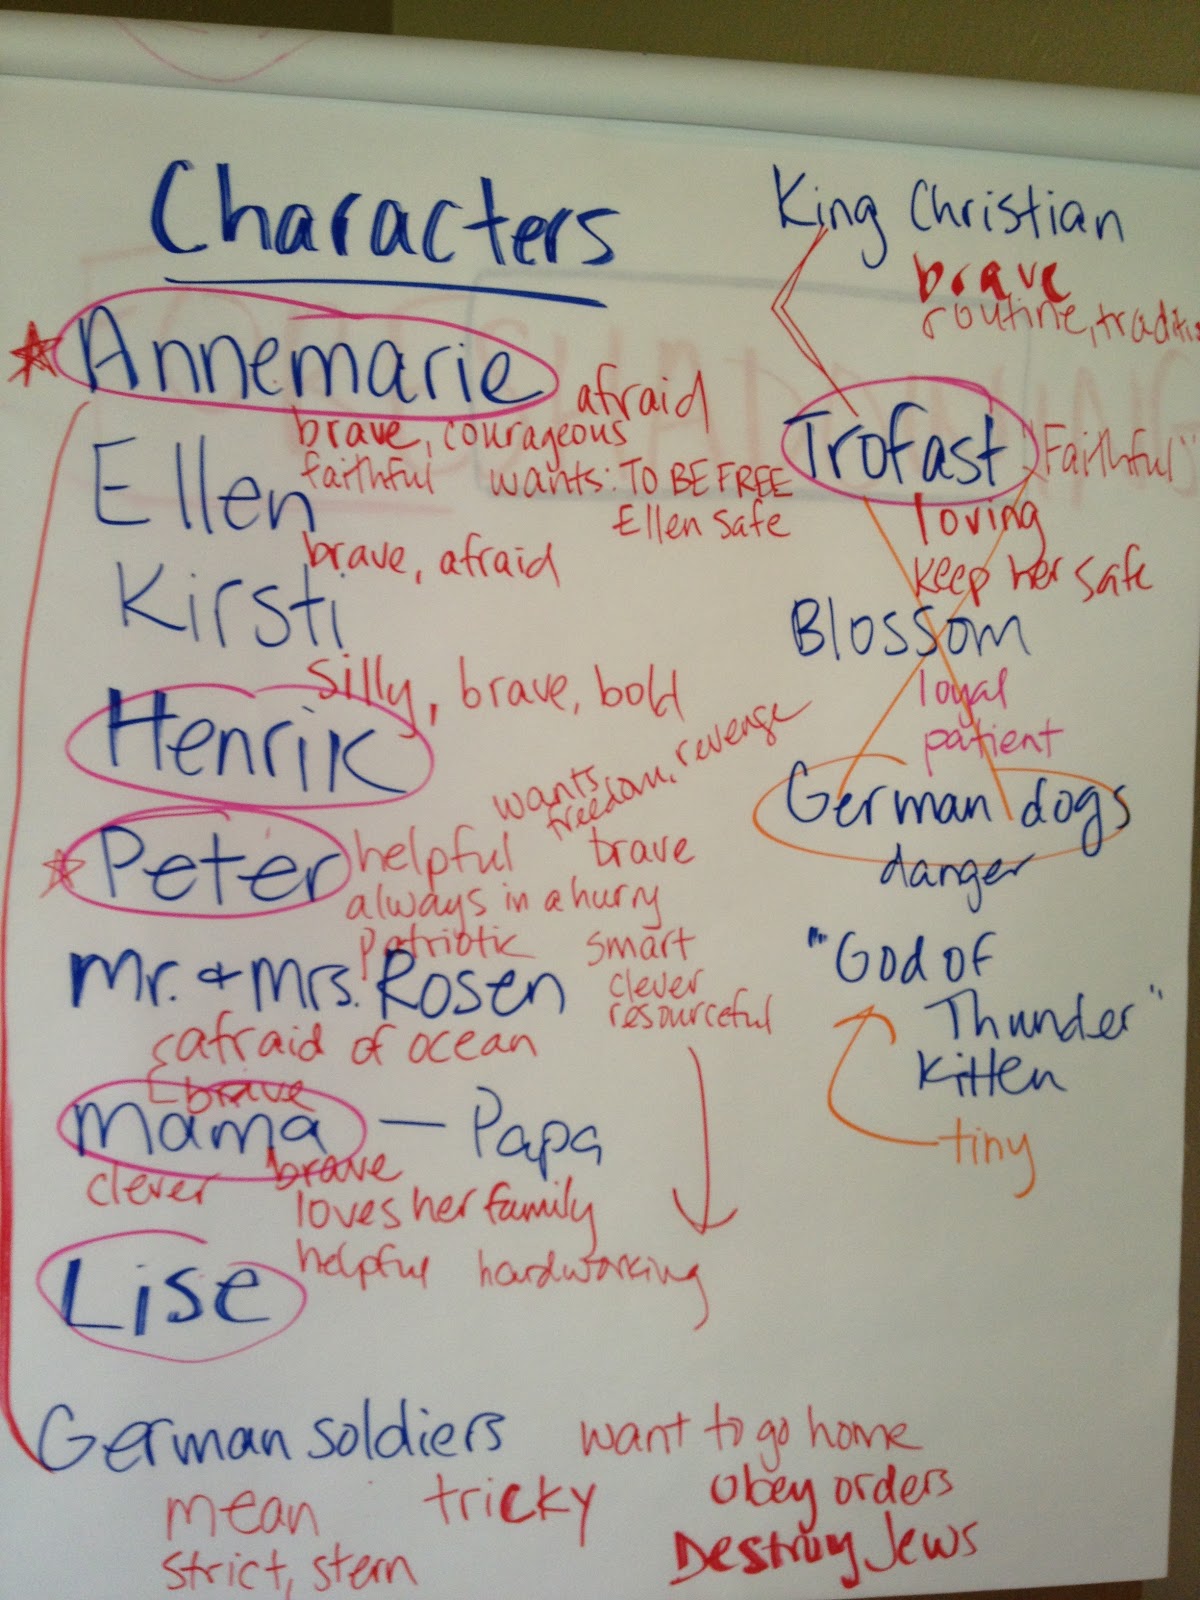 Characters
Annemarie afraid
brave, courageous
faithful wants: TO BE FREE
Ellen safe
Ellen
brave, afraid
Kirsti
silly, brave, bold
Henrik
wants freedom, revenge
Peter helpful brave
always in a hurry
patriotic smart
clever
resourceful
Mr. + Mrs. Rosen
afraid of ocean
brave
Mama — Papa
clever brave
loves her family
helpful hardworking
Lise
German soldiers want to go home
mean tricky obey orders
strict, stern Destroy Jews
King Christian
brave
routine, traditi
Trofast "Faithful"
loving
keep her safe
Blossom
loyal
patient
German dogs
danger
"God of
Thunder"
Kitten
tiny